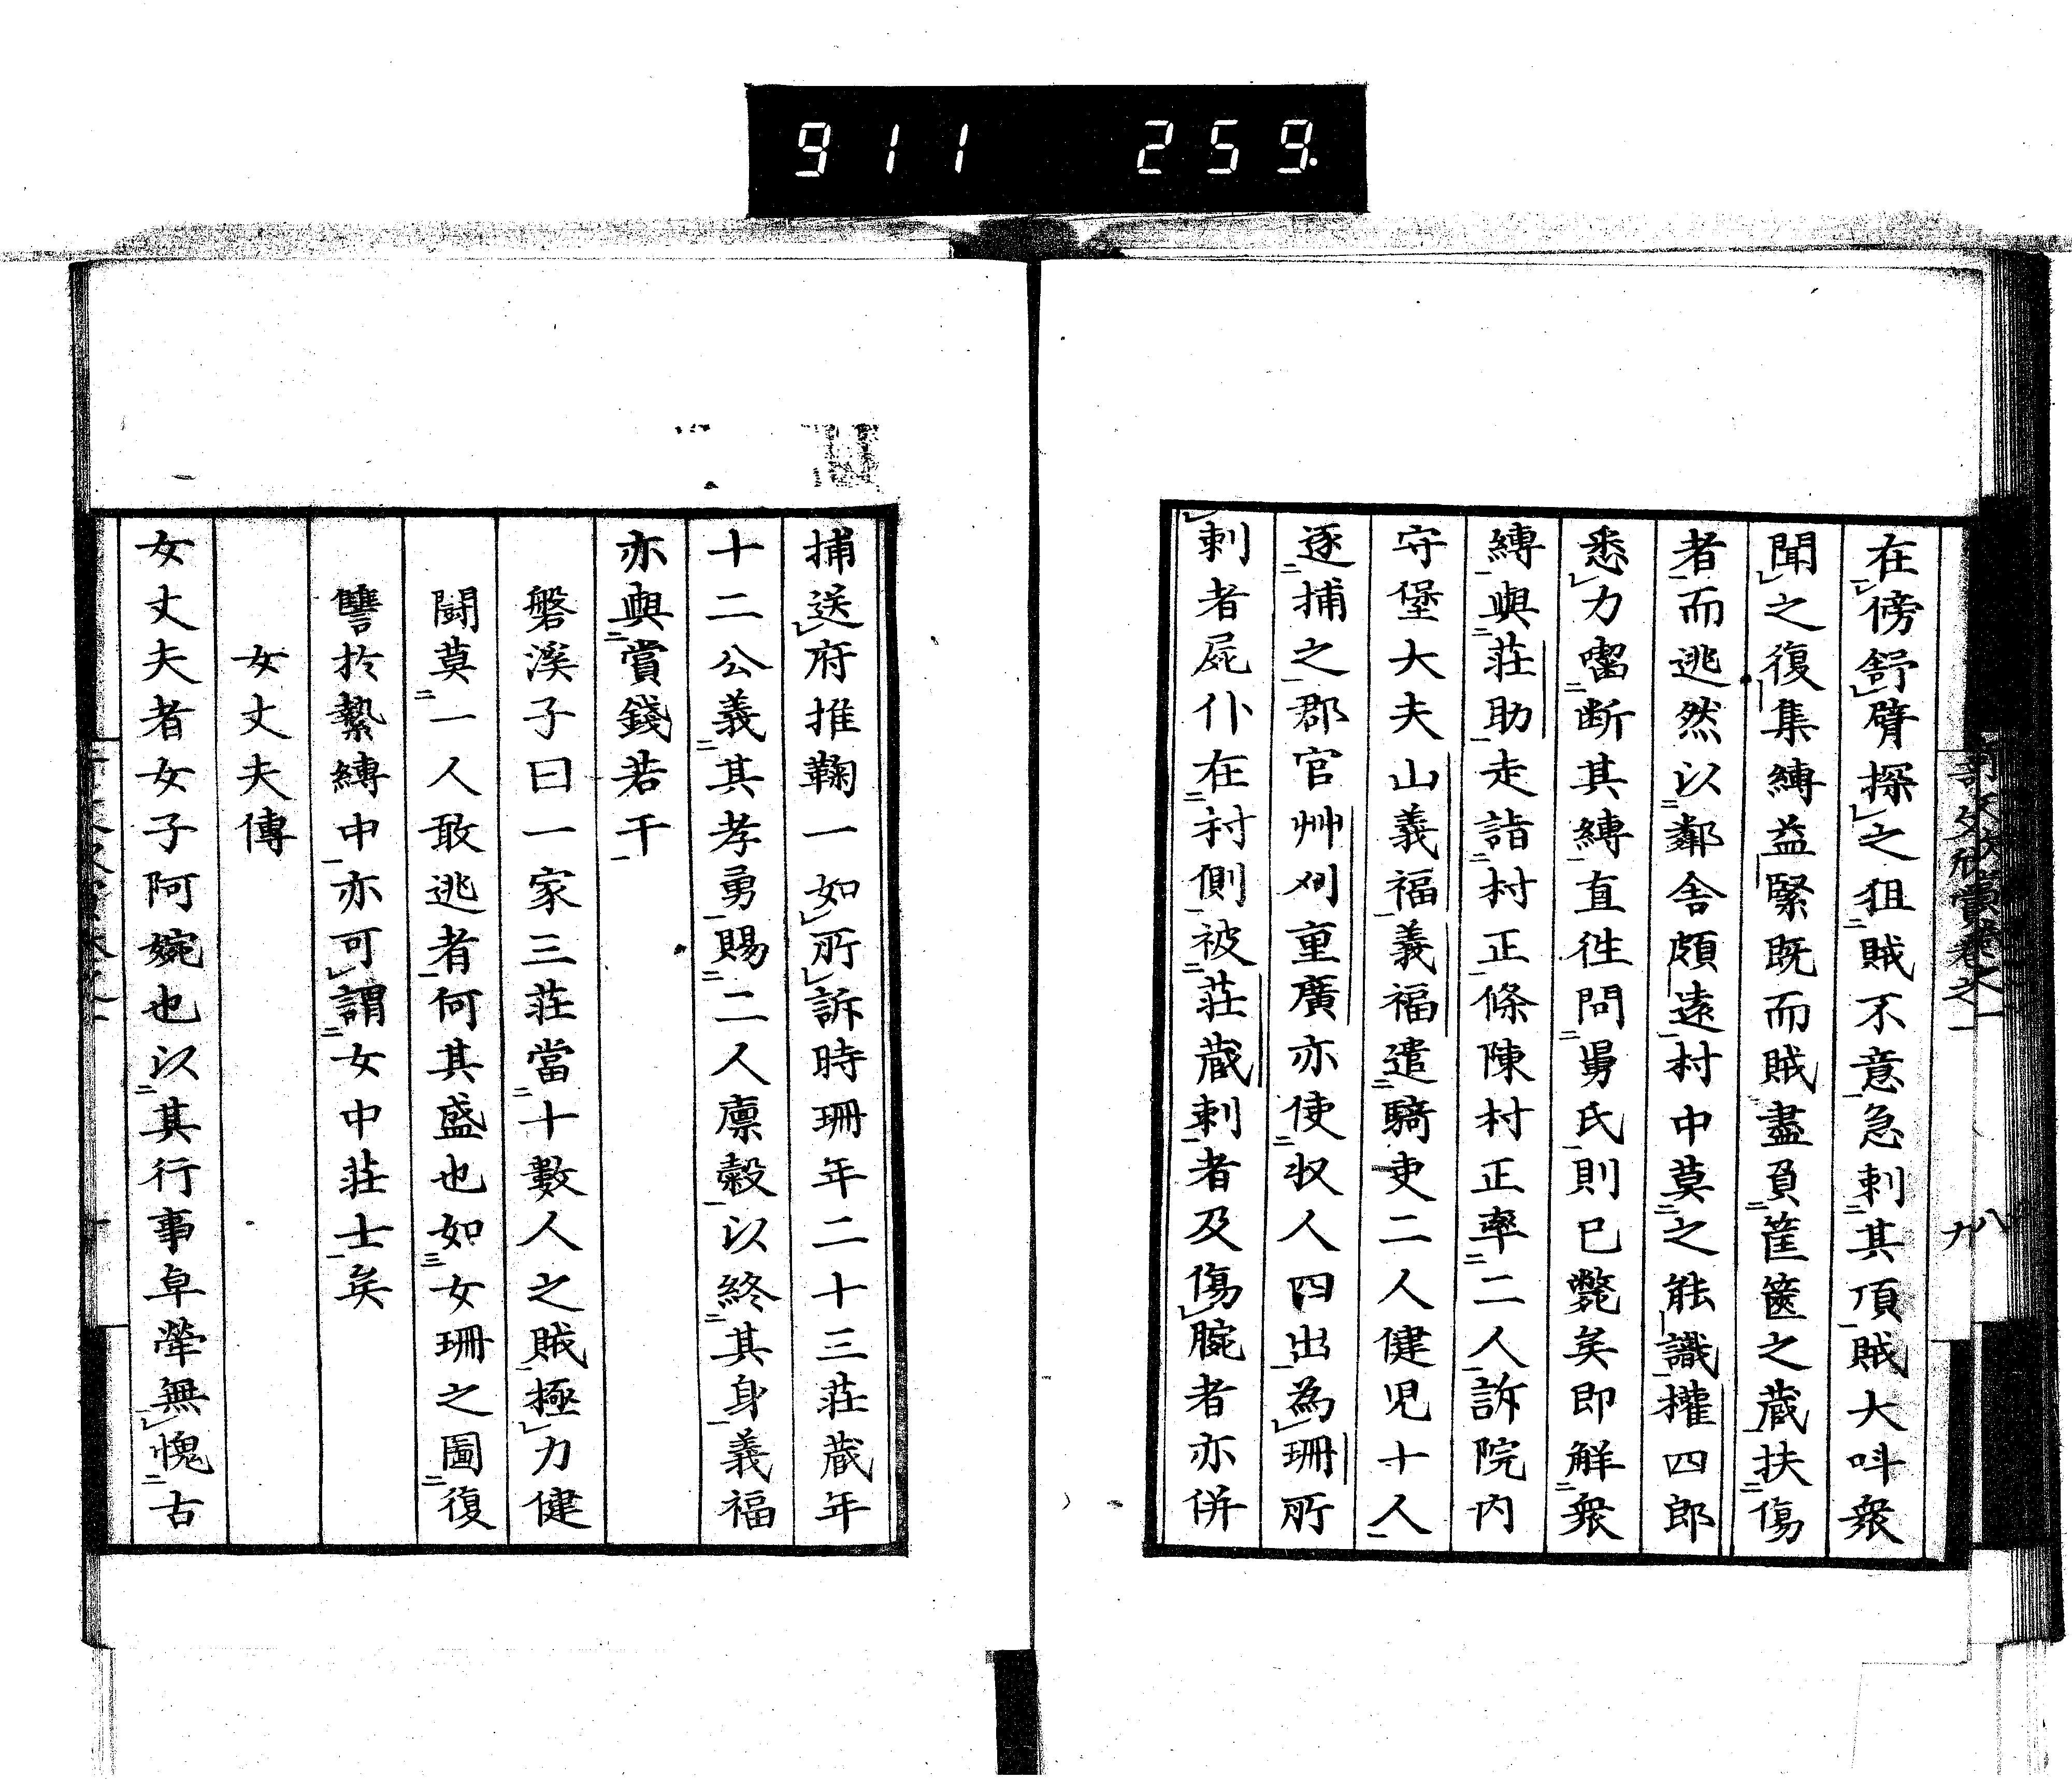 911 259.
在傍舒臂探之狙賊不意急刺其頂賊大呌衆
聞之復集縛益緊既而賊盡負筐篋之蔵扶傷
者而逃然以鄰舎頗遠村中莫之能識權四郎
悉力囓断其縛直徃問舅氏則已斃矣即解衆
縛與莊助走詣村正條陳村正率二人訴院内
守堡大夫山義福義福遣騎吏二人健児十人
逐捕之郡官艸刈重廣亦使収人四出為珊所
刺者屍仆在村側被莊蔵刺者及傷腕者亦併
捕送府推鞫一如所訴時珊年二十三莊蔵年
十二公義其孝勇賜二人廪穀以終其身義福
亦與賞錢若干
磐溪子曰一家三莊當十數人之賊極力健
闘莫一人敢逃者何其盛也如女珊之圖復
讐於縶縛中亦可謂女中莊士矣
女丈夫傳
女丈夫者女子阿婉也以其行事卓犖無愧古